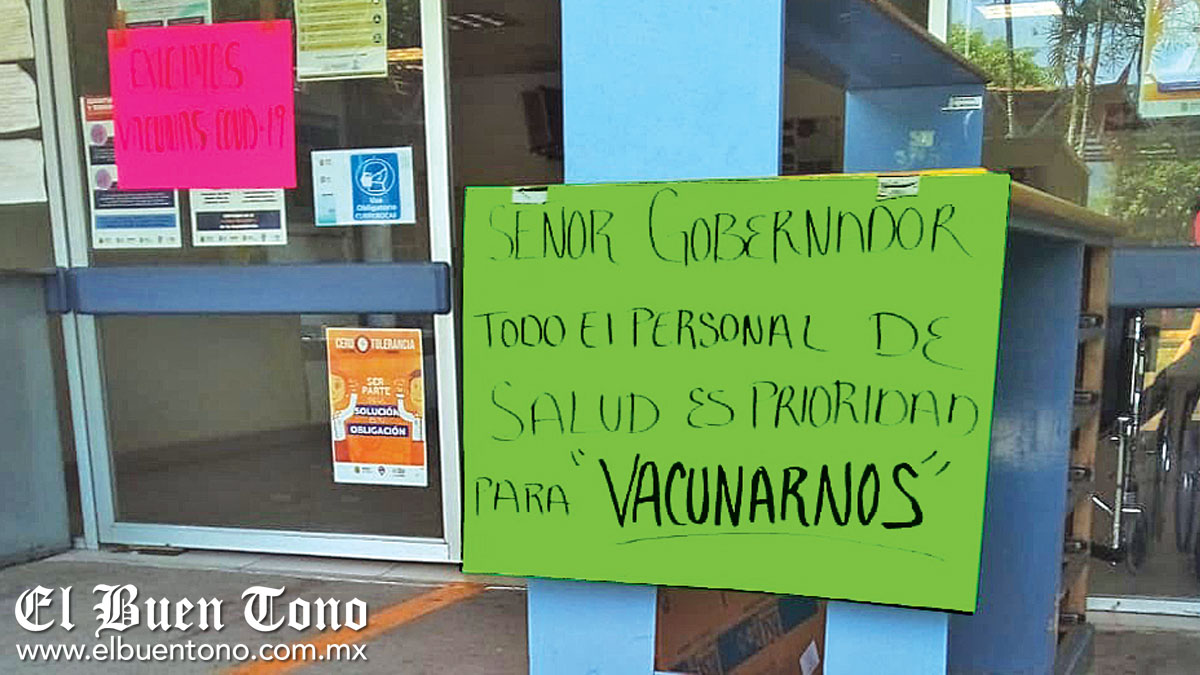 EXIGIMOS
VACUNAS COVID-19
Uso
Obligatorio
CUBREBOCAS
SEÑOR GOBERNADOR
TODO El PERSONAL DE
SALUD ES PRIORIDAD
PARA "VACUNARNOS"
CERO TOLERANCIA
SER
PARTE
SOLUCIÓN
OBLIGACIÓN
El Buen Tono
www.elbuentono.com.mx